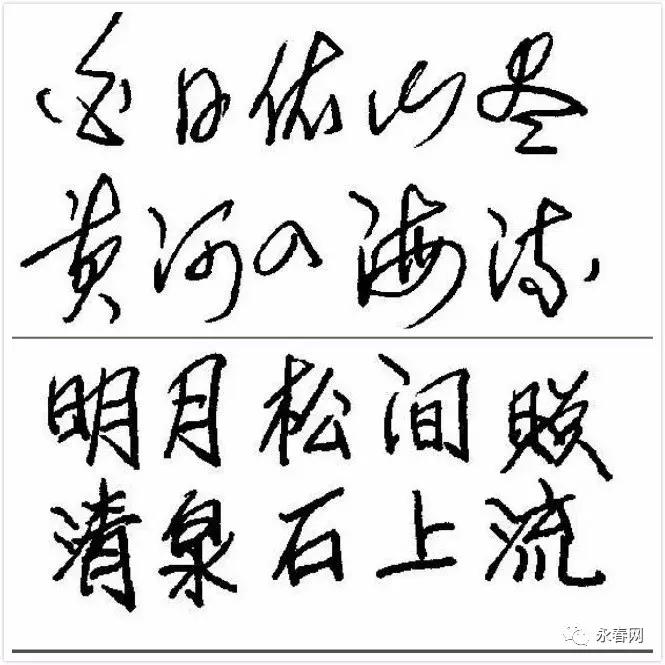 白日依山尽
黄河入海流
明月松间照
清泉石上流
永春网